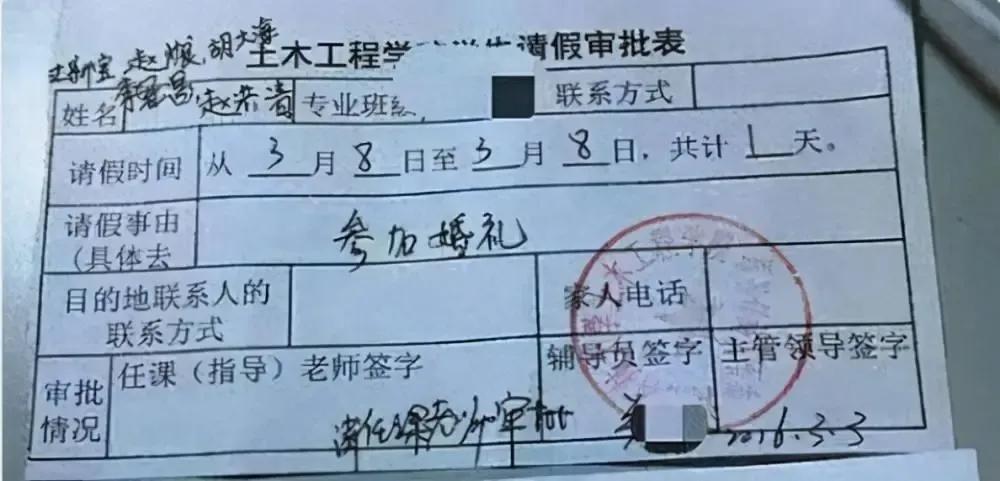 土木工程学 请假审批表
赵 胡大海
姓名 赵洪清 专业班 联系方式
请假时间 从 3 月 8 日至 3 月 8 日，共计 1 天。
请假事由
(具体去
参加婚礼
目的地联系人的
联系方式
家人电话
审批
情况
任课（指导）老师签字
辅导员签字
主管领导签字
请任课老师审批
2016.3.3